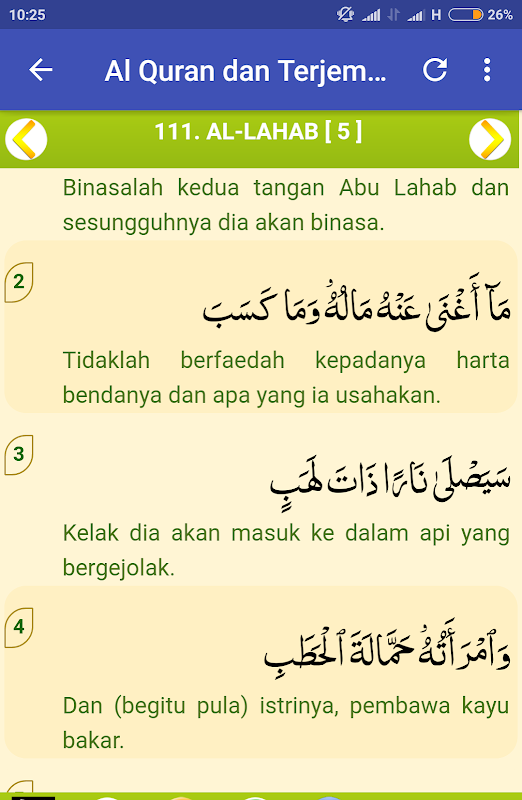 10:25 H 26%
Al Quran dan Terjem...
111. AL-LAHAB [ 5 ]
Binasalah kedua tangan Abu Lahab dan
sesungguhnya dia akan binasa.
2
مَآ أَغْنَىٰ عَنْهُ مَالُهُۥ وَمَا كَسَبَ
Tidaklah berfaedah kepadanya harta
bendanya dan apa yang ia usahakan.
3
سَيَصْلَىٰ نَارًا ذَاتَ لَهَبٍ
Kelak dia akan masuk ke dalam api yang
bergejolak.
4
وَٱمْرَأَتُهُۥ حَمَّالَةَ ٱلْحَطَبِ
Dan (begitu pula) istrinya, pembawa kayu
bakar.